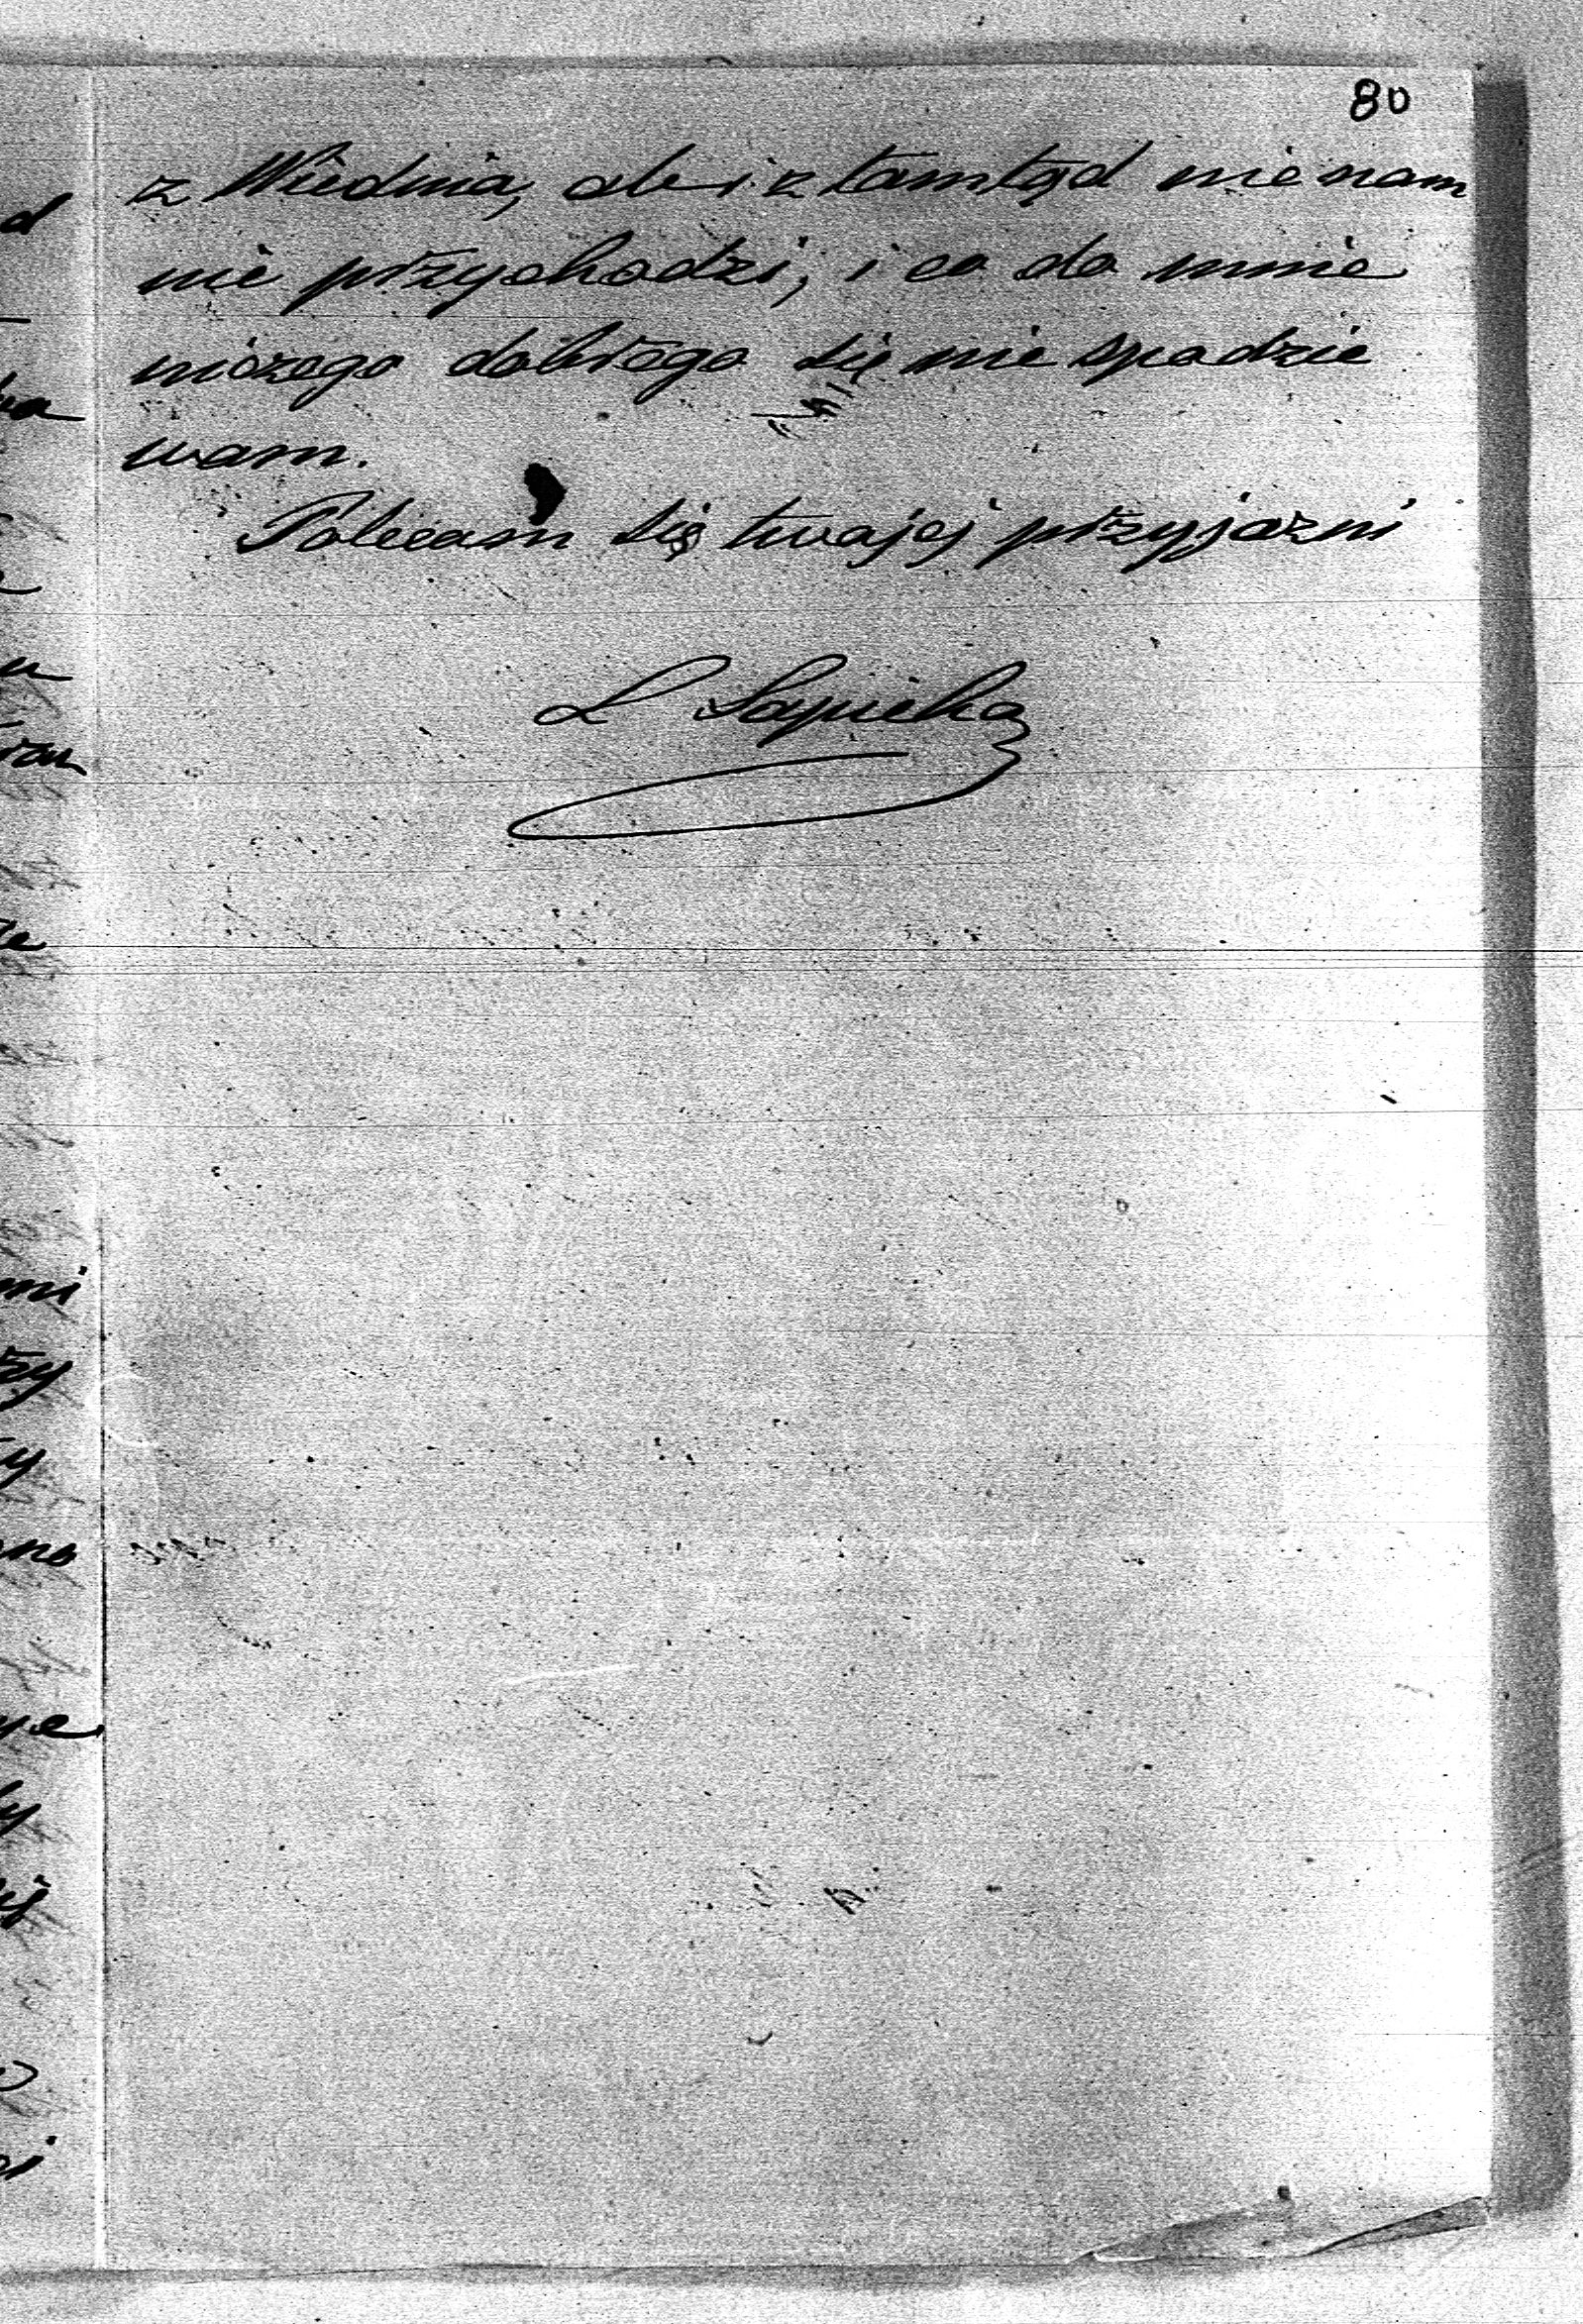 80
z Wiednia, ale i z tamtąd nic nam
nie przychodzi, i co do mnie
niczego dobrego się nie spodzie
wam.
Polecam się twojej przyjazni
L Sapieha